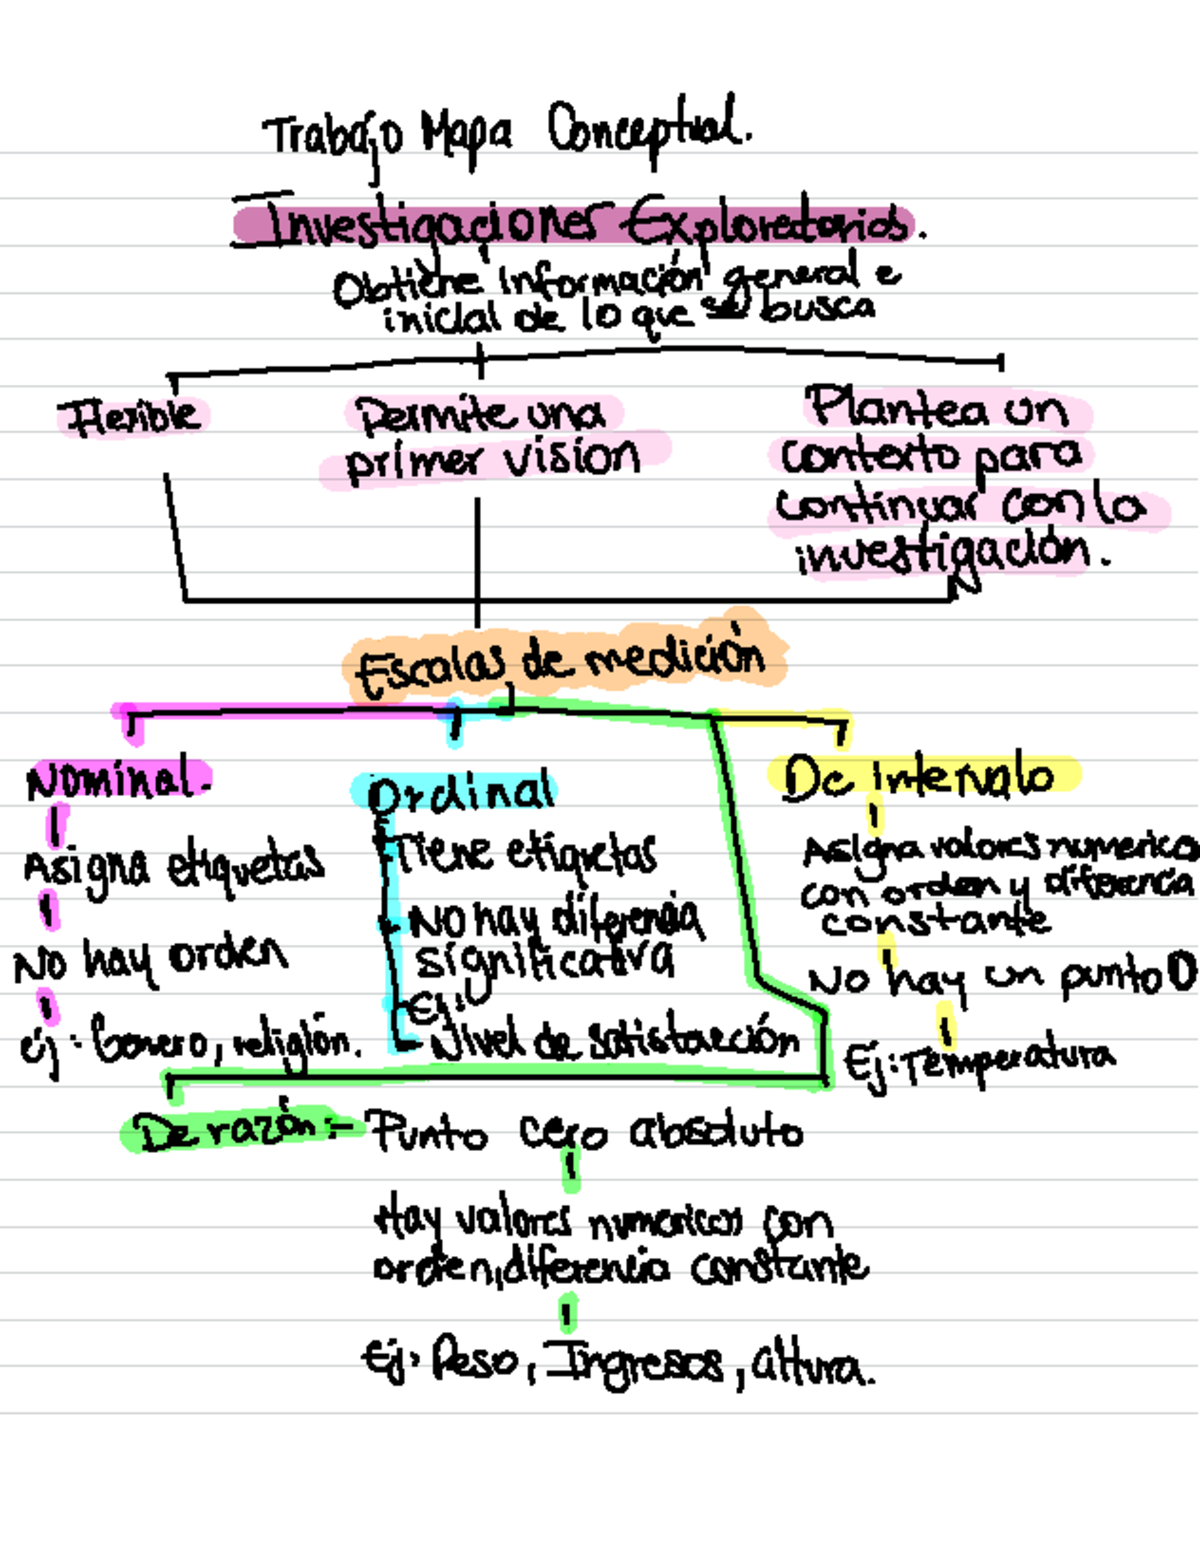 Trabajo Mapa Conceptual.
Investigaciones Exploratorias.
Obtiene información general e
inicial de lo que se busca
Flexible
Permite una
primer vision
Plantea un
contexto para
continuar con la
investigación.
Escalas de medición
Nominal.
Asigna etiquetas
No hay orden
Ej: Genero, religión.
Ordinal
Tiene etiquetas
No hay diferencia
significativa
Ej:
Nivel de satisfacción
De intervalo
Asigna valores numericos
con orden y diferencia
constante
No hay un punto 0
Ej: Temperatura
De razón:- Punto cero absoluto
Hay valores numericos con
orden, diferencia constante
Ej: Peso, Ingresos, altura.